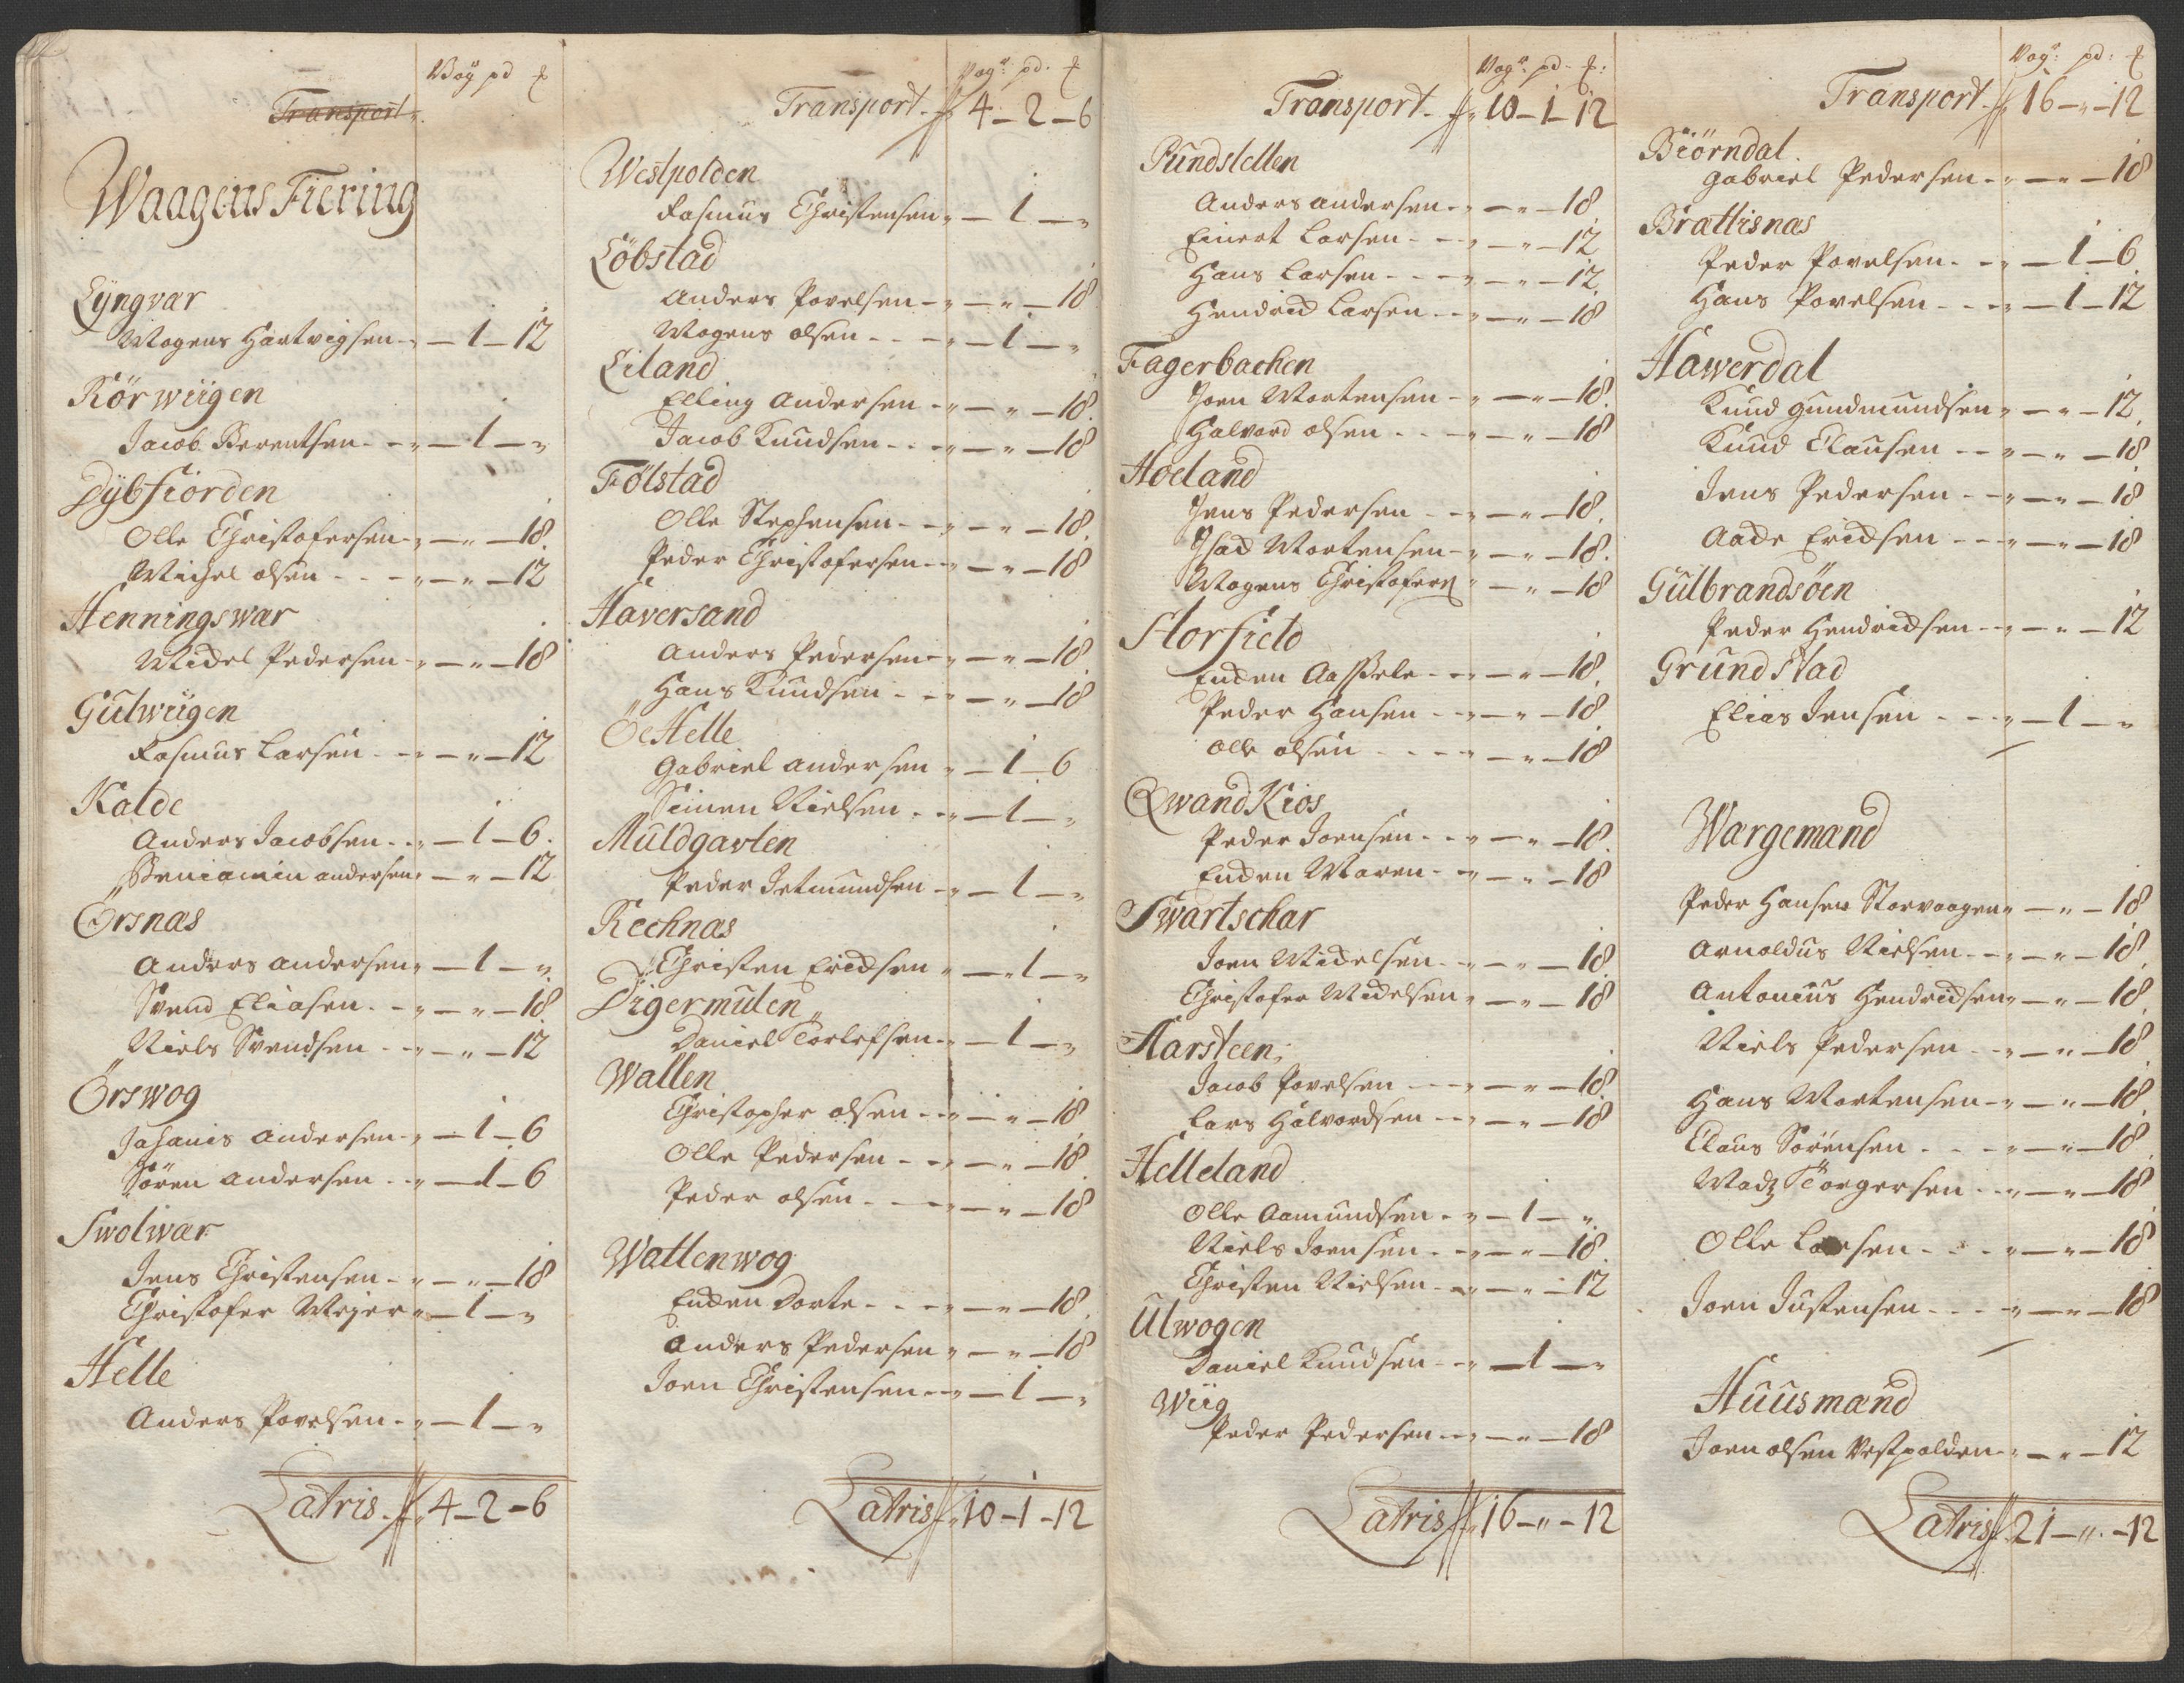 Vog pd ℔
Transport
Waagens Fiering
Lÿngvar
Mogens Hartvigsen - „ - 1 - 12
Rörwiigen
Jacob Berentsen - „ - 1 - „
Dÿbfiorden
Olle Christofersen - „ - „ - 18
Michel olsen - „ - „ - 12
Henningswar
Mickel Pedersen - „ - „ - 18
Gulwiigen
Rasmus Larsen - „ - „ - 12
Kalde
Anders Jacobsen - „ - 1 - 6
Beniamin andersen „ - „ - 12
Örsnas
Anders andersen „ - 1 - „
Svend Eliasen - „ - „ - 18
Niels Svendsen - „ - „ - 12
Örswog
Johanis andersen - „ - 1 - 6
Sören andersen - „ - 1 - 6
Swolwar
Jens Christensen - „ - „ - 18
Christofer Mejer „ - 1 - „
Helle
Anders Povelsen - „ - 1 - „
Latris 4 - 2 - 6
Vogr: pd: ℔
Transport 4 - 2 - 6
Westpolden
Rasmus Christensen „ - 1 - „
Löbstad
Anders Povelsen - „ - „ - 18
Mogens olsen - „ - 1 - „
Eiland
Elling Andersen - „ - „ - 18
Jacob Knudsen - „ - „ - 18
Fölstad
Olle Stephensen - „ - „ - 18
Peder Christofersen - „ - „ - 18
Haversand
Anders Pedersen - „ - „ - 18
Hans Knudsen - „ - „ - 18
Öe Helle
Gabriel andersen „ - 1 - 6
Simen Nielsen - „ - 1 - „
Muldgavlen
Peder Jetmundsen - „ - 1 - „
Rechnas
Christen Ericksen „ - 1 - „
Digermulen
Daniel Torlefsen - „ - 1 - „
Wallen
Christopher olsen - „ - „ - 18
Olle Pedersen - „ - „ - 18
Peder olsen - „ - „ - 18
Wattenwog
Encken Dorte - „ - „ - 18
Anders Pedersen „ - „ - 18
Joen Christensen - „ - 1 - „
Latris 10 - 1 - 12
Vogr: pd: ℔:
Transport 10 - 1 - 12
Pundsletten
Anders andersen - „ - „ - 18
Einert Larsen - „ - „ - 12
Hans Larsen - „ - „ - 12
Hendrick Larsen - „ - „ - 18
Fagerbachen
Joen Mortensen - „ - „ - 18
Halvord olsen - „ - „ - 18
Hoeland
Jens Pedersen - „ - „ - 18
Isack Mortensen - „ - „ - 18
Mogens Christofers „ - „ - 18
Storfield
Encken Aassele - „ - „ - 18
Peder Hansen - „ - „ - 18
Olle olsen - „ - „ - 18
Qwand Kios
Peder Joensen - „ - „ - 18
Encken Maren - „ - „ - 18
Swartschar
Joen Mickelsen - „ - „ - 18
Christofer Mickelsen „ - „ - 18
Aarsteen
Jacob Povelsen - „ - „ - 18
Lars Halvordsen - „ - „ - 18
Helleland
Olle Aamundsen - „ - 1 - „
Niels Joensen - „ - „ - 18
Christen Nielsen - „ - „ - 12
Ulwogen
Daniel Knudsen - „ - 1 - „
Wiig
Peder Pedersen - „ - „ - 18
Latris 16 - „ - 12
Vogr: pd: ℔
Transport 16 - „ - 12
Biörndal.
Gabriel Pedersen - „ - „ - 18
Brattisnas
Peder Povelsen - „ - 1 - 6
Hans Povelsen - „ - 1 - 12
Hawerdal
Knud Gundmundsen „ - „ - 12
Knud Clausen - „ - „ - 18
Jens Pedersen - „ - „ - 18
Aade Ericksen - „ - „ - 18
Gulbrandsöen
Peder Hendricksen - „ - „ - 12
Grundstad
Elias Jensen - „ - 1 - „
Wargemænd
Peder Hansen Storvaagen „ - „ - 18
Arnoldus Nielsen - „ - „ - 18
Antonius Hendricksen „ - „ - 18
Niels Pedersen - „ - „ - 18
Hans Mortensen - „ - „ - 18
Claus Sörensen - „ - „ - 18
Madz Torgersen - „ - „ - 18
Olle Larsen - „ - „ - 18
Joen Justensen - „ - „ - 18
Huusmænd
Joen olsen Vestpolden - „ - „ - 12
Latris 21 - „ - 12